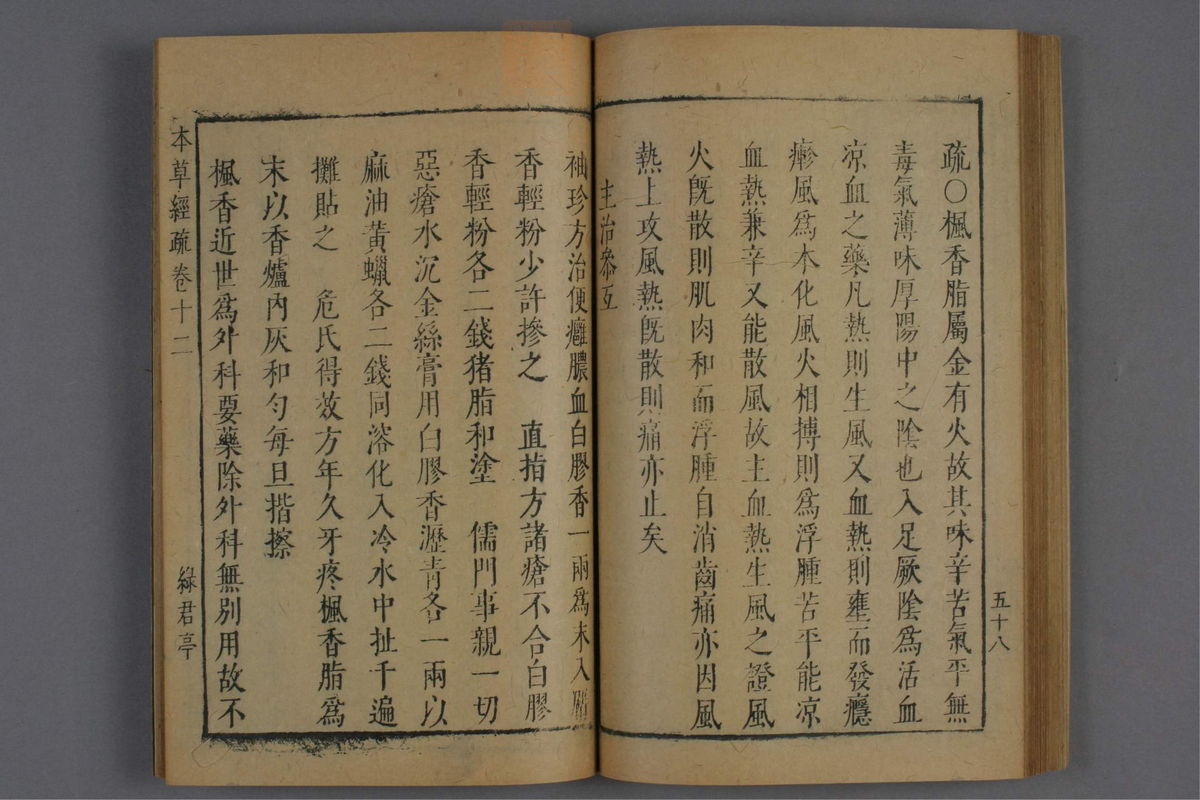 疏○楓香脂屬金有火故其味辛苦氣平無
毒氣薄味厚陽中之陰也入足厥陰爲活血
凉血之藥凡熱則生風又血熱則壅而發癮
瘮風爲木化風火相搏則爲浮腫苦平能凉
血熱兼辛又能散風故主血熱生風之證風
火旣散則肌肉和而浮腫自消齒痛亦因風
熱上攻風熱旣散則痛亦止矣
主治叅互
五十八
袖珍方治便癰膿血白膠香一兩爲末入麝
香輕粉少許摻之　直指方諸瘡不合白膠
香輕粉各二錢猪脂和塗　儒門事親一切
惡瘡水沉金絲膏用白膠香瀝青各一兩以
麻油黃蠟各二錢同溶化入冷水中扯千遍
攤貼之　危氏得效方年久牙疼楓香脂爲
末以香爐內灰和勻每旦揩擦
楓香近世爲外科要藥除外科無別用故不
本草經疏卷十二
綠君亭